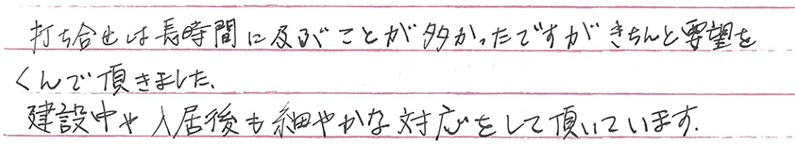 打ち合せは長時間に及ぶことが多かったですがきちんと要望を
くんで頂きました、
建設中や入居後も細やかな対応をして頂いています.